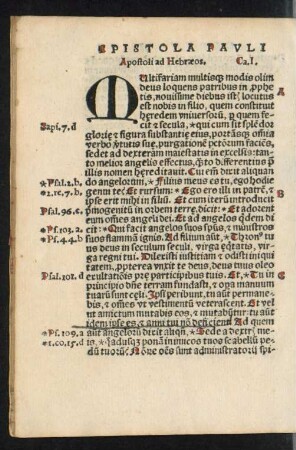 EPISTOLA PAVLI
Apostoli ad Hebræos. Ca.I.
MUltifariam multisq; modis olim
deus loquens patribus in ꝓphe
tis, nouissime diebus istꝭ locutus
est nobis in filio, quem constituit
heredem vniuersorū, p quem fe
cit & secula, *qui cum sit splēdor
glorię & figura substantię eius, portāsq; omīa
verbo ꝟtutis suę, purgationē pctōrum faciēs,
sedet ad dexteram maiestatis in excelsis: tan-
to melior angelis effectus, q̄to differentius p̄
illis nomen hereditauit. Cui em̄ dixit aliquan
do angelorum, *Filius meus es tu, ego hodie
genui te: Et rursum: *Ego ero illi in patrē, &
ipse erit mihi in filiū. Et cum iterū introducit
pmogenitū in orbem terrę, dicit: *Et adorent
eum omēs angeli dei. Et ad angelos q̄dem di
cit: *Qui facit angelos suos spūs, & ministros
suos flammā ignis. Ad filium aūt, *Thronꝰ tu
us deus in seculum seculi, virga ęqtatis, virga
regni tui. Dilexisti iustitiam & odisti iniqui
tatem, ppterea vnxit te deus, deus tuus oleo
exultationis prę participibus tuis. Et *Tu in
principio dn̄e terram fundasti, & opa manuum
tuarū sunt cęli. Ipsi peribunt, tu aūt permane-
bis, & omēs vt vestimentū veterascent. Et velut
amictum mutabis eos, & mutabūtur: tu aūt
idem ipse es, & anni tui nō deficient. Ad quem
aūt angelorū dixit aliqn̄, *Sede a dextrꝭ me-
is, *quoadusq; ponam inimicos tuos scabellū pe-
dū tuorū: Nōne oēs sunt administratorij spi-
A
B
C
Sapi.7.d
*Psal.2.b.
*2.re.7.b.
Psal.96.c.
*Ps.103.a
*Ps.44.b
Psal.101.d
*Ps.109.a
*1.co.15.d